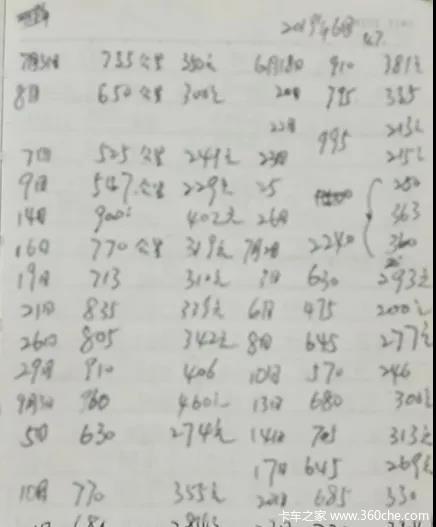 2019年6月
7月30日 755公里 350元 6月18日 910 381元
8日 650公里 300元 20日 795 335
22日 995 213元
7日 525公里 249元 23日 215元
9日 547公里 229元 25 250
14日 900 402元 26日 363
16日 770公里 319元 7月2日 2240 360
19日 713 310元 3日 630 293元
21日 835 339元 6日 475 200元
26日 805 342元 8日 645 277元
29日 910 406 10日 570 246
9月3日 960 460元 13日 680 300元
5日 630 274元 14日 705 313元
17日 645 269元
10日 770 355元 20日 685 330
卡车之家 www.360che.com